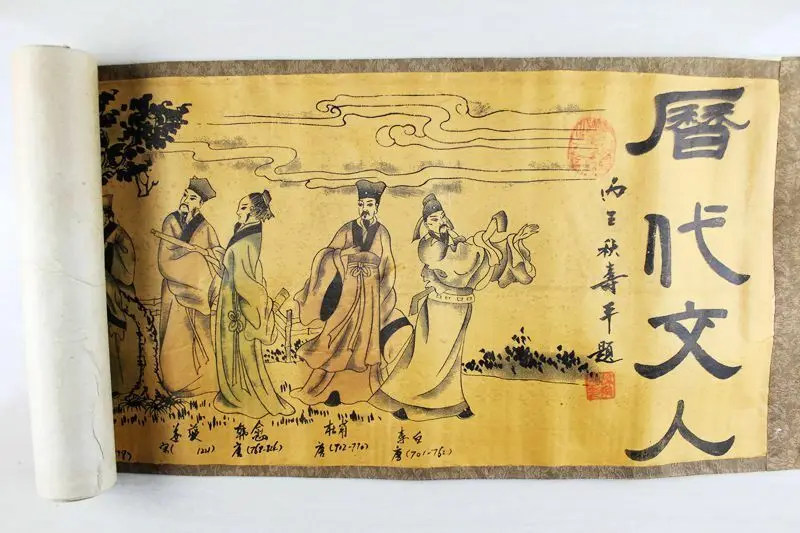 曆代文人
丙王秋壽平題
李白
唐(701-762)
杜甫
唐(712-770)
韓愈
唐(768-824)
姜夔
宋( 1221)